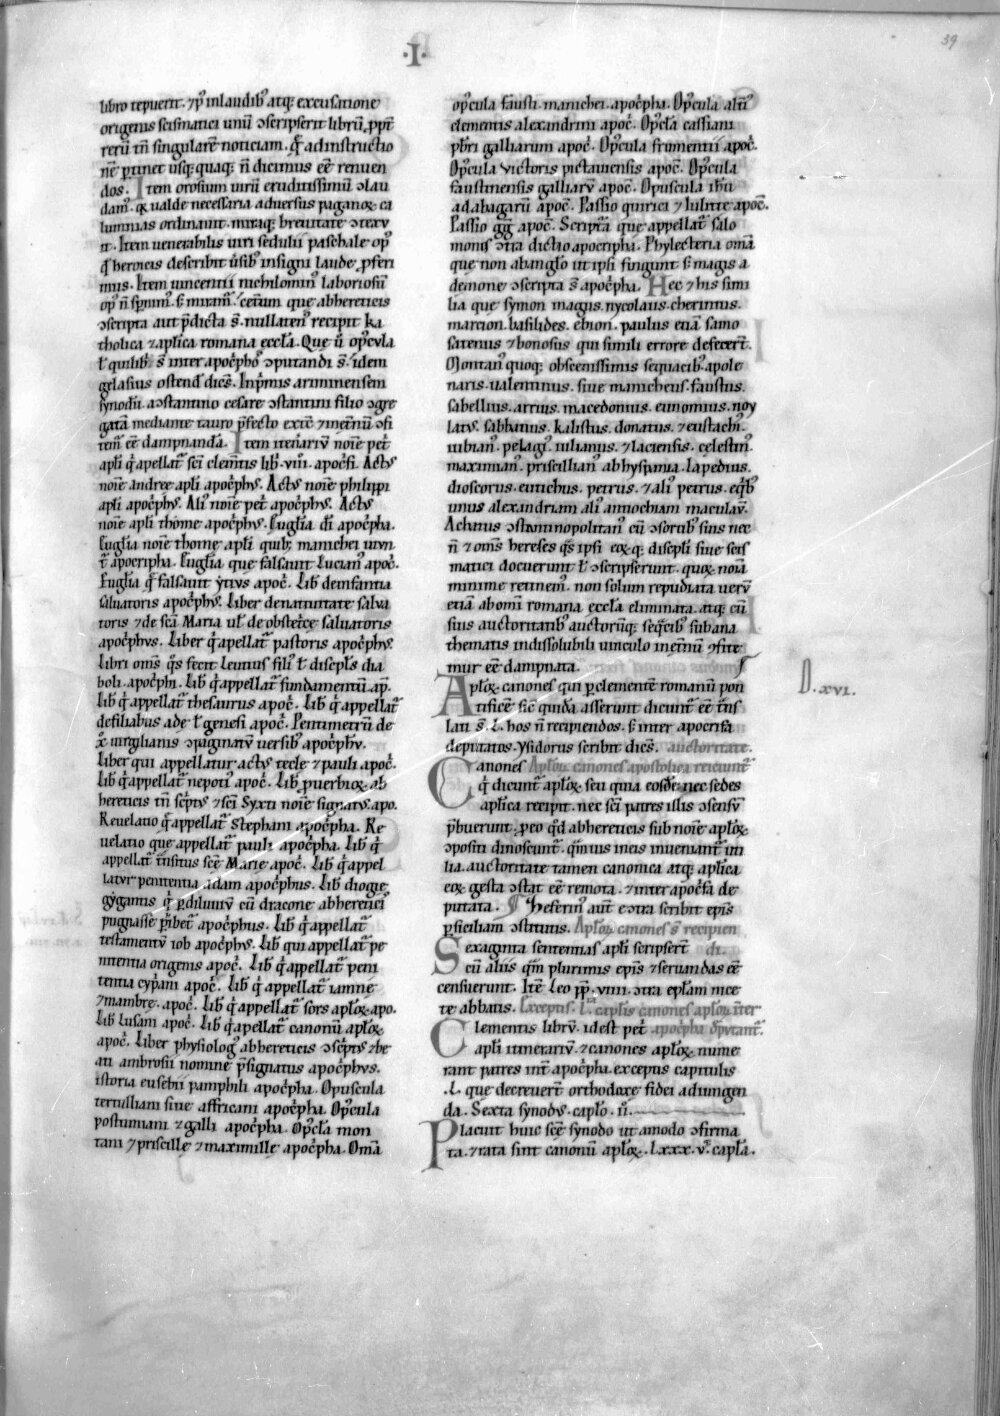 ·I·
39
libro tepuerit. ⁊ p᷒ in laudib᷒ atq; excusatione
origenis scismatici unū ↄscripserit librū, ꝓpt̄
rerū tn̄ singularē noticiam. q̇ ad instructio
nē ꝑtinet usq;quaq; n̄ dicimus eē renuen
dos. Item orosium uirū eruditissimū ↄlau
dam᷒. q̇ ualde necessaria aduersus paganoꝝ ca
lumnias ordinauit. miraq; breuitate ↄtexu
it. Item uenerabilis uiri sedulii paschale op᷒
q̇ heroicis describit ūsib᷒ insigni laude ꝓferi
mus. Item iuuencii nichilomin᷒ laboriosū
op᷒ n̄ sp̄nim᷒. s; miram᷒. Cetum que ab hereticis
ↄscripta aut p̄dicta s̄. nullaten᷒ recipit ka
tholica ⁊ aplica romana eccl̄a. Que ū opēula
t̄ quilib᷒ s̄ inter apoc̄pho᷒ ↄputandi s̄. idem
gelasius ostend᷒ dicēs. Inp̄mis ariminensem
synodū. a ↄstantino cesare ↄstantini filio ↄgre
gatā mediante tauro p̄fecto extc̄ ⁊ in et̄nū ↄfi
tem᷒ eē dampnandā. Item itenerariū noīe pet̄
apl̄i q̇ apellat᷒ sc̄i clem̄tis lib᷒. viii. apoc̄fi. Act᷒
noīe andree apl̄i apoc̄ph᷒. Act᷒ noīe philippi
apl̄i apoc̄ph᷒. Ali᷒ noīe pet̄ apoc̄ph᷒. Act᷒
noīe apl̄i thome apoc̄ph᷒. Euglīa ...... apoc̄pha.
Euglīa noīe thome apl̄i quib; manichei utun
t᷒ apocripha. Euglīa que falsauit Lucian᷒ apoc̄.
Euglīa q̇ falsauit ytius apoc̄. Lib᷒ de infantia
saluatoris apoc̄ph᷒. Liber de natiuitate salua
toris ⁊ de sc̄a Maria ul᷒ de obstet̄ce saluatoris
apoc̄phus. Liber q̇ apellat᷒ pastoris apoc̄ph᷒.
Libri om̄s q̄s fecit leutius fili᷒ t̄ discipl̄s dia
boli. apoc̄phi. Lib᷒ q̇ appellat᷒ fundamentū ap̄.
Lib᷒ q̇ appellat᷒ thesaurus apoc̄. Lib᷒ q̇ appellat᷒
de filiabus ade t̄ genesi apoc̄. Pentimetrū de
x̄ uirgilianis ↄpaginatū uersib᷒ apoc̄phū.
Liber qui appellatur act᷒ tecle ⁊ pauli apoc̄.
Lib᷒ q̇ appellat᷒ nepoti᷒ apoc̄. Lib᷒ ꝓuerbioꝝ ab
hereticis tn̄ sc̄pt᷒ ⁊ sc̄i Syxti noīe signat᷒. apo.
Reuelatio q̇ appellat᷒ Stephani apoc̄pha. Re
uelatio que appellat᷒ pauli apoc̄pha. Lib᷒ q̇
appellat᷒ t̄nsitus sc̄e Marie apoc̄. Lib᷒ q̇ appel
latur penitentia adam apoc̄phus. Lib᷒ diogie
gygantis q̇ p᷒ diluuiū cū dracone ab hereticis
pugnasse ꝑhibet᷒ apoc̄phus. Lib᷒ q̇ appellat᷒
testamentū iob apoc̄ph᷒. Lib᷒ qui appellat᷒ pe
nitentia origenis apoc̄. Lib᷒ q̇ appellat᷒ peni
tentia cyp̄ani apoc̄. Lib᷒ q̇ appellat᷒ iamne
⁊ mambre. apoc̄. Lib᷒ q̇ appellat᷒ sors apl̄oꝝ. apo.
Lib᷒ lusam apoc̄. Lib᷒ q̇ apellat᷒ canonū apl̄oꝝ
apoc̄. Liber physiolog᷒ ab hereticis ↄsc̄pt᷒ ⁊ be
ati ambrosii nomine p̄signatus apoc̄ph᷒.
istoria eusebii pamphili apoc̄pha. Opuscula
tertulliani siue affricani apoc̄pha. Op᷒cula
postumiani ⁊ galli apoc̄pha. Op᷒cl̄a mon
tani ⁊ priscille ⁊ maximille apoc̄pha. Om̄a
op᷒cula fausti. manichei. apoc̄pha. Op᷒cula alti᷒
clementis alexandrini apoc̄. Op᷒cl̄a cassiani
pb̄ri galliarum apoc̄. Op᷒cula frumentii apoc̄.
Op᷒cula Victoris pictauiensis apoc̄. Op᷒cula
faustinensis galliarū apoc̄. Opuscula ih̄u
ad abagarū apoc̄. Passio quirici ⁊ Iulitte apoc̄.
Passio gg᷒ apoc̄. Scriptā que appellat᷒ salo
monis ↄtradictio apocripha. Phylecteria om̄a
que non ab anglo᷒ ut ipsi fingunt s; magis a
demone ↄscripta s̄ apoc̄pha. Hec ⁊ his simi
lia que symon magus. nycolaus. cherintus.
marcion. basilides. ebion. paulus etiā samo
satenus ⁊ bonosius qui simili errore defecert̄.
Montan᷒ quoq; obscenissimis sequacib᷒ apole
naris. ualentinus. siue manicheus. faustus.
sabellius. arrius. macedonius. eunomius. nou
lat᷒. sabbatius. kalistus. donatus. ⁊ eustachi᷒.
iubian᷒. pelagi᷒. iulianus. ⁊ laciensis. celestin᷒.
maximian᷒. priscillian᷒ ab hyspania. lapedius.
dioscorus. eutichus. petrus. ⁊ ali᷒ petrus. e q̄b᷒
unus alexandriam ali᷒ antiochiam maculau̅.
Achatius ↄstantinopolitan᷒ cū ↄsortib᷒ suis nec
n̄ ⁊ om̄s hereses q̄s ipsi eoꝝq; discipl̄i siue scis
matici docuerunt t̄ ↄscripserunt. quoꝝ noīa
minime retinem᷒. non solum repudiata uerū
etiā ab om̄i romana eccl̄a eliminata. atq; cū
suis auctoritatib᷒ auctorūq; seq̄cib᷒ sub ana
thematis indissolubili uinculo in et̄nū ↄfite
mur eē dampnata.
D. xvi.
Apl̄oꝝ canones qui p clementē romanū pon
tificē sic̄ quidā asserunt dicunt᷒ eē t̄ns
lati s̄. L. hos n̄ recipiendos. s; inter apocrifa
deputatos. ysidorus scribit dicēs. auctoritate.
Canones Apl̄oꝝ canones apostolica reiciunt᷒
q̇ dicunt᷒ apl̄oꝝ. seu quia eosdē nec sedes
aplica recipit. nec sc̄i patres illis ↄsensū
p̄buerunt. ꝓ eo q̇d ab hereticis sub noīe apl̄oꝝ
ↄpositi dinoscunt᷒. q̄muis in eis inueniant᷒ uti
lia. auctoritate tamen canonica atq; aplica
eoꝝ gesta ↄstat eē remota. ⁊ inter apoc̄fa de
putata. ¶ Zeferin᷒ aut̄ eↄtra scribit ep̄is
p siciliam ↄstitutis. Apl̄oꝝ canones s̄ recipien
Sexaginta sententias apl̄i scripsert̄ di.
cū aliis q̄m plurimis ep̄is ⁊ seruandas eē
censuerunt. Itē Leo p̄p̄. viiii. ↄtra epl̄am nice
te abbatis. Exceptis. L. capl̄is canones apl̄oꝝ int̄er
Clementis librū. id est pet̄ apoc̄pha dp̄utant᷒.
apl̄i itinerariū. ⁊ canones apl̄oꝝ nume
rant patres int̄ apoc̄pha. exceptis capitulis
.L. que decreuert̄ orthodoxe fidei adiungen
da. Sexta synod᷒. capl̄o. ii.
Placuit huic sc̄e synodo ut amodo ↄfirma
ta. ⁊ rata sint canonū apl̄oꝝ. Lxxx. v. capl̄a.